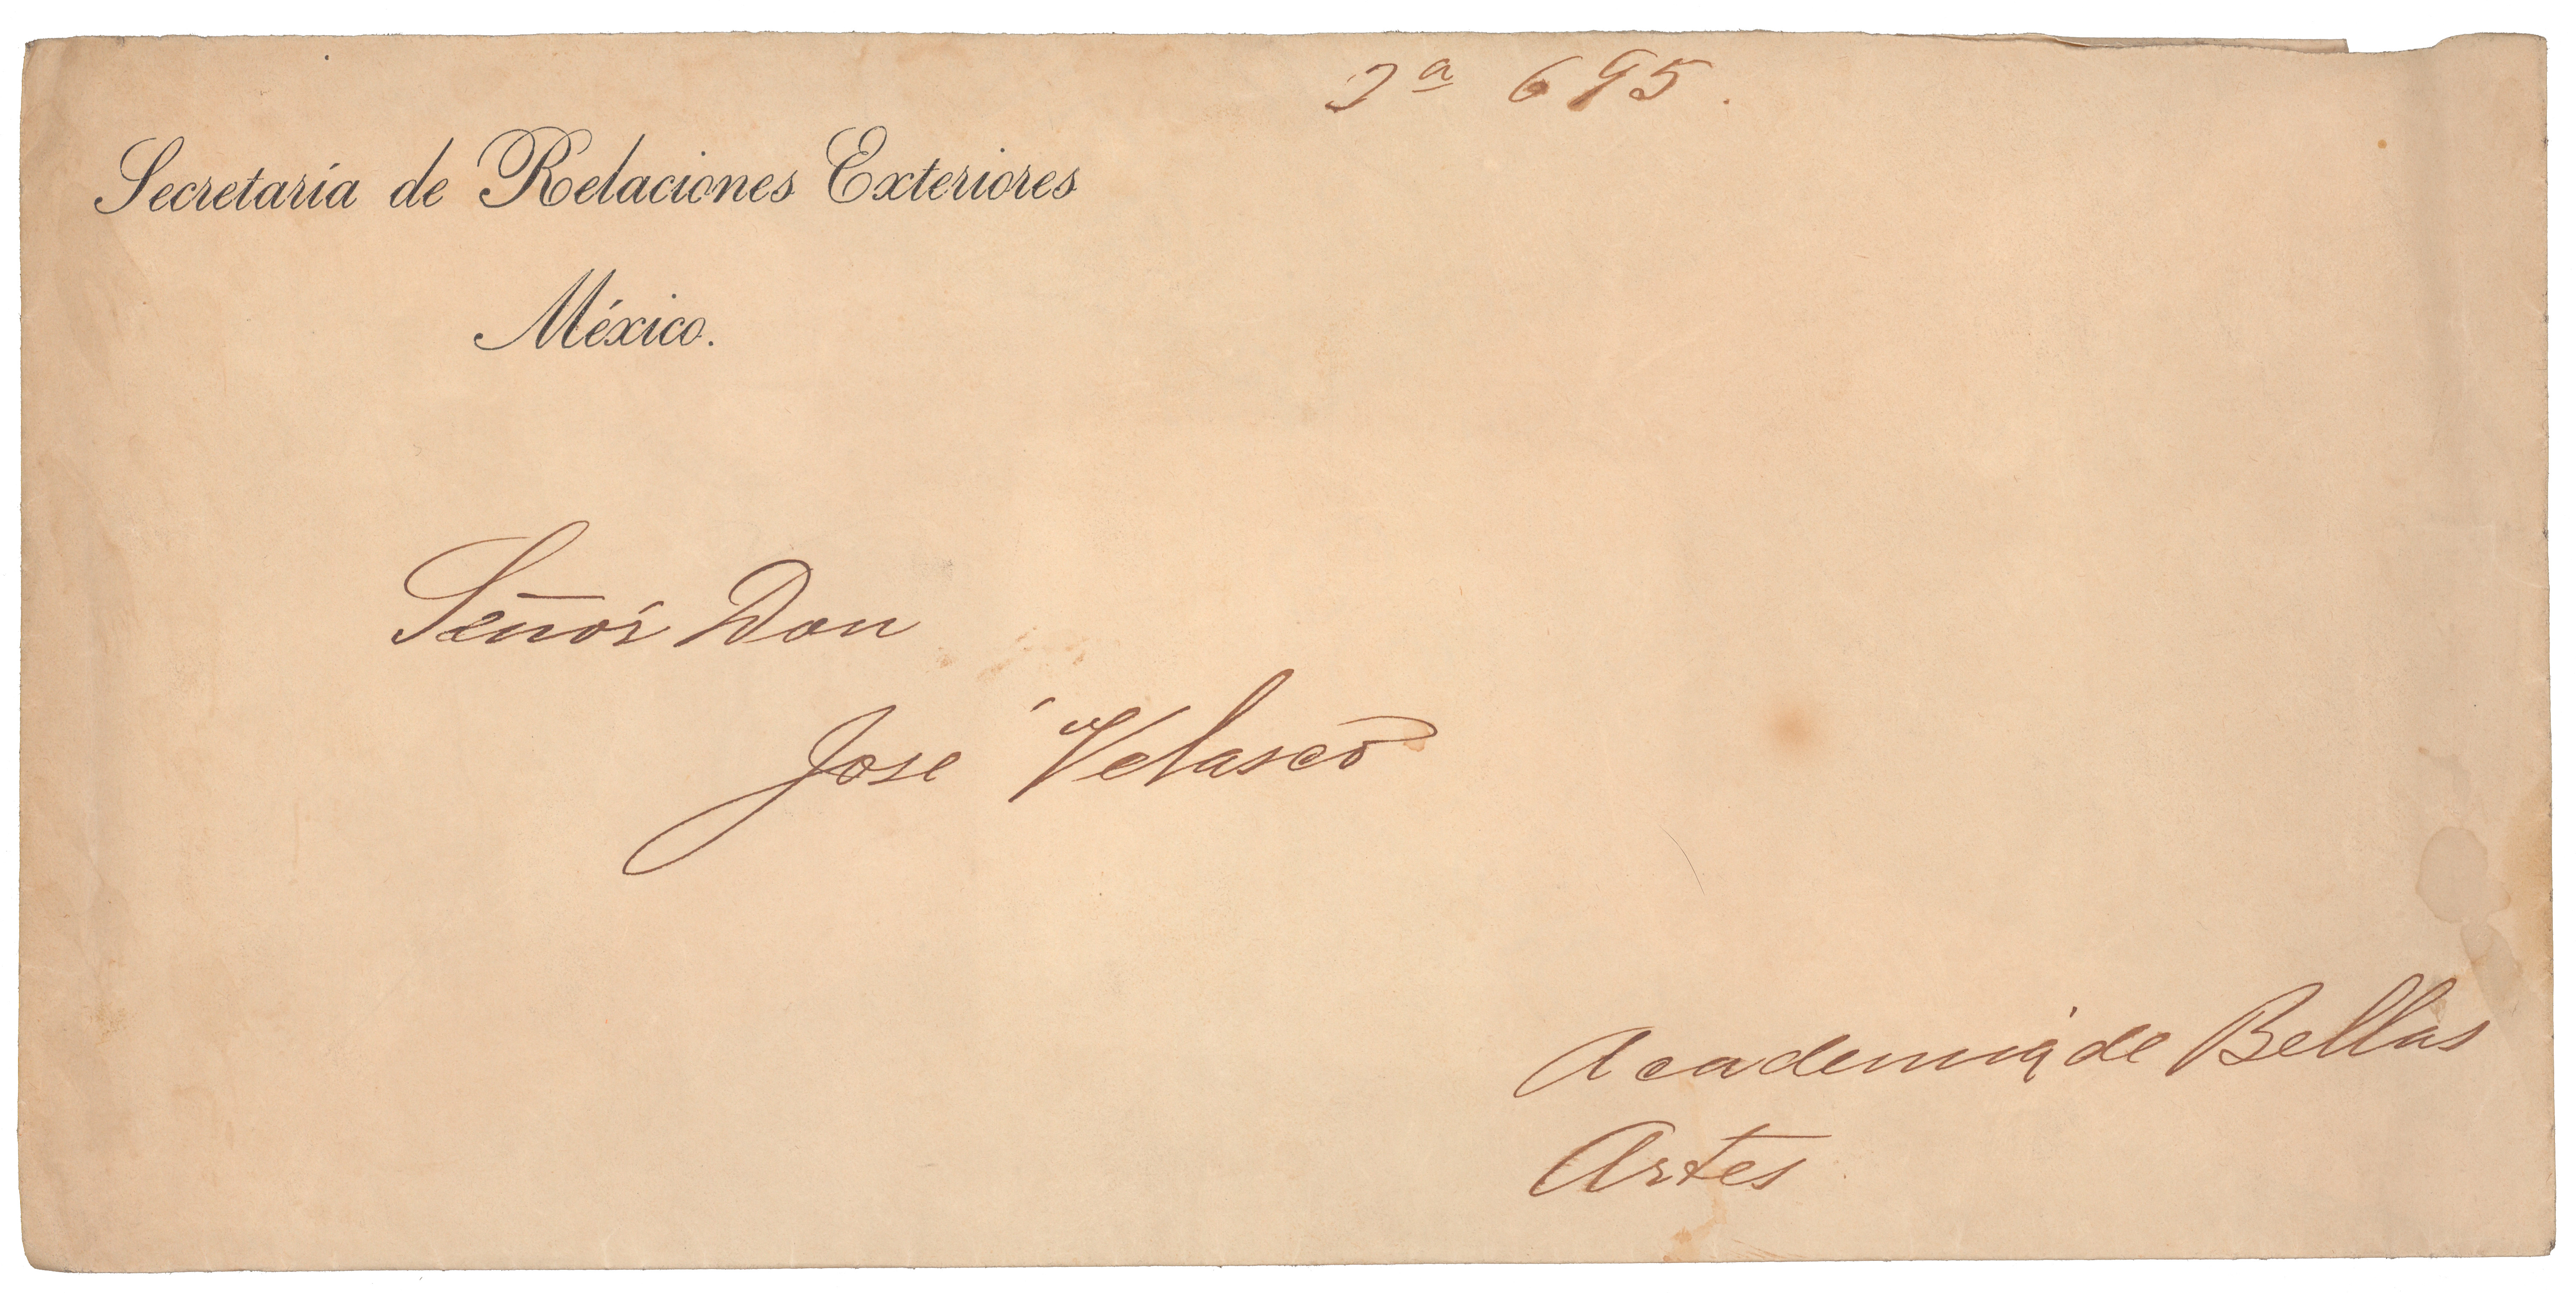 2ª 695.
Secretaría de Relaciones Exteriores
México.
Señor Don
José Velasco
Academia de Bellas
Artes